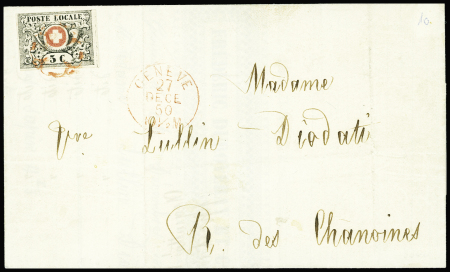 POSTE LOCALE
5 C.
GENÈVE
27
DECE
50
Madame
Vve Lullin Diodati
R. des Chanoines